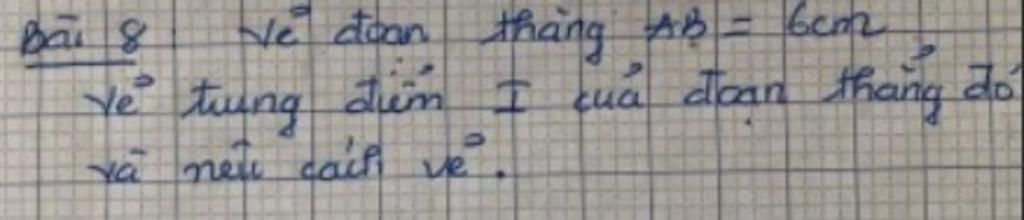 Bài 8 Vẽ đoạn thẳng AB = 6cm
Vẽ trung điểm I của đoạn thẳng đó
và nêu cách vẽ.